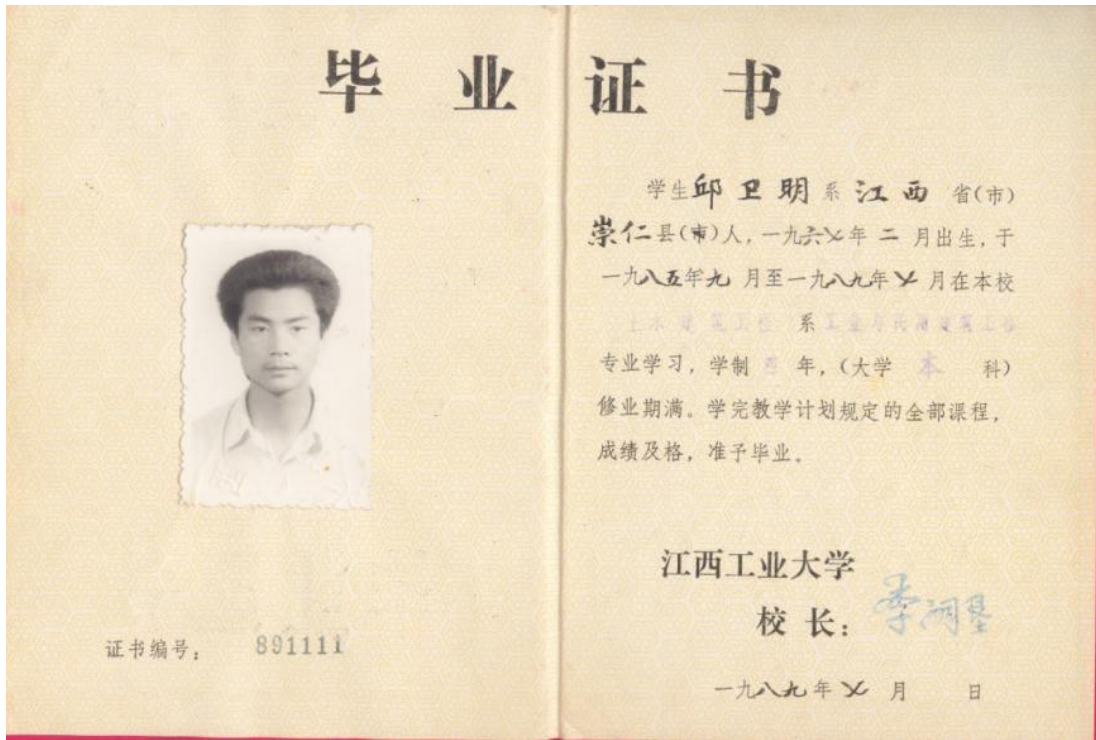 毕业证书
证书编号： 891111
学生邱卫明系江西省(市)
崇仁县(市)人，一九六七年二月出生，于
一九八五年九月至一九八九年七月在本校
土木建筑工程系工业与民用建筑工程
专业学习，学制四年，(大学本科)
修业期满。学完教学计划规定的全部课程，
成绩及格，准予毕业。
江西工业大学
校长：
一九八九年七月 日